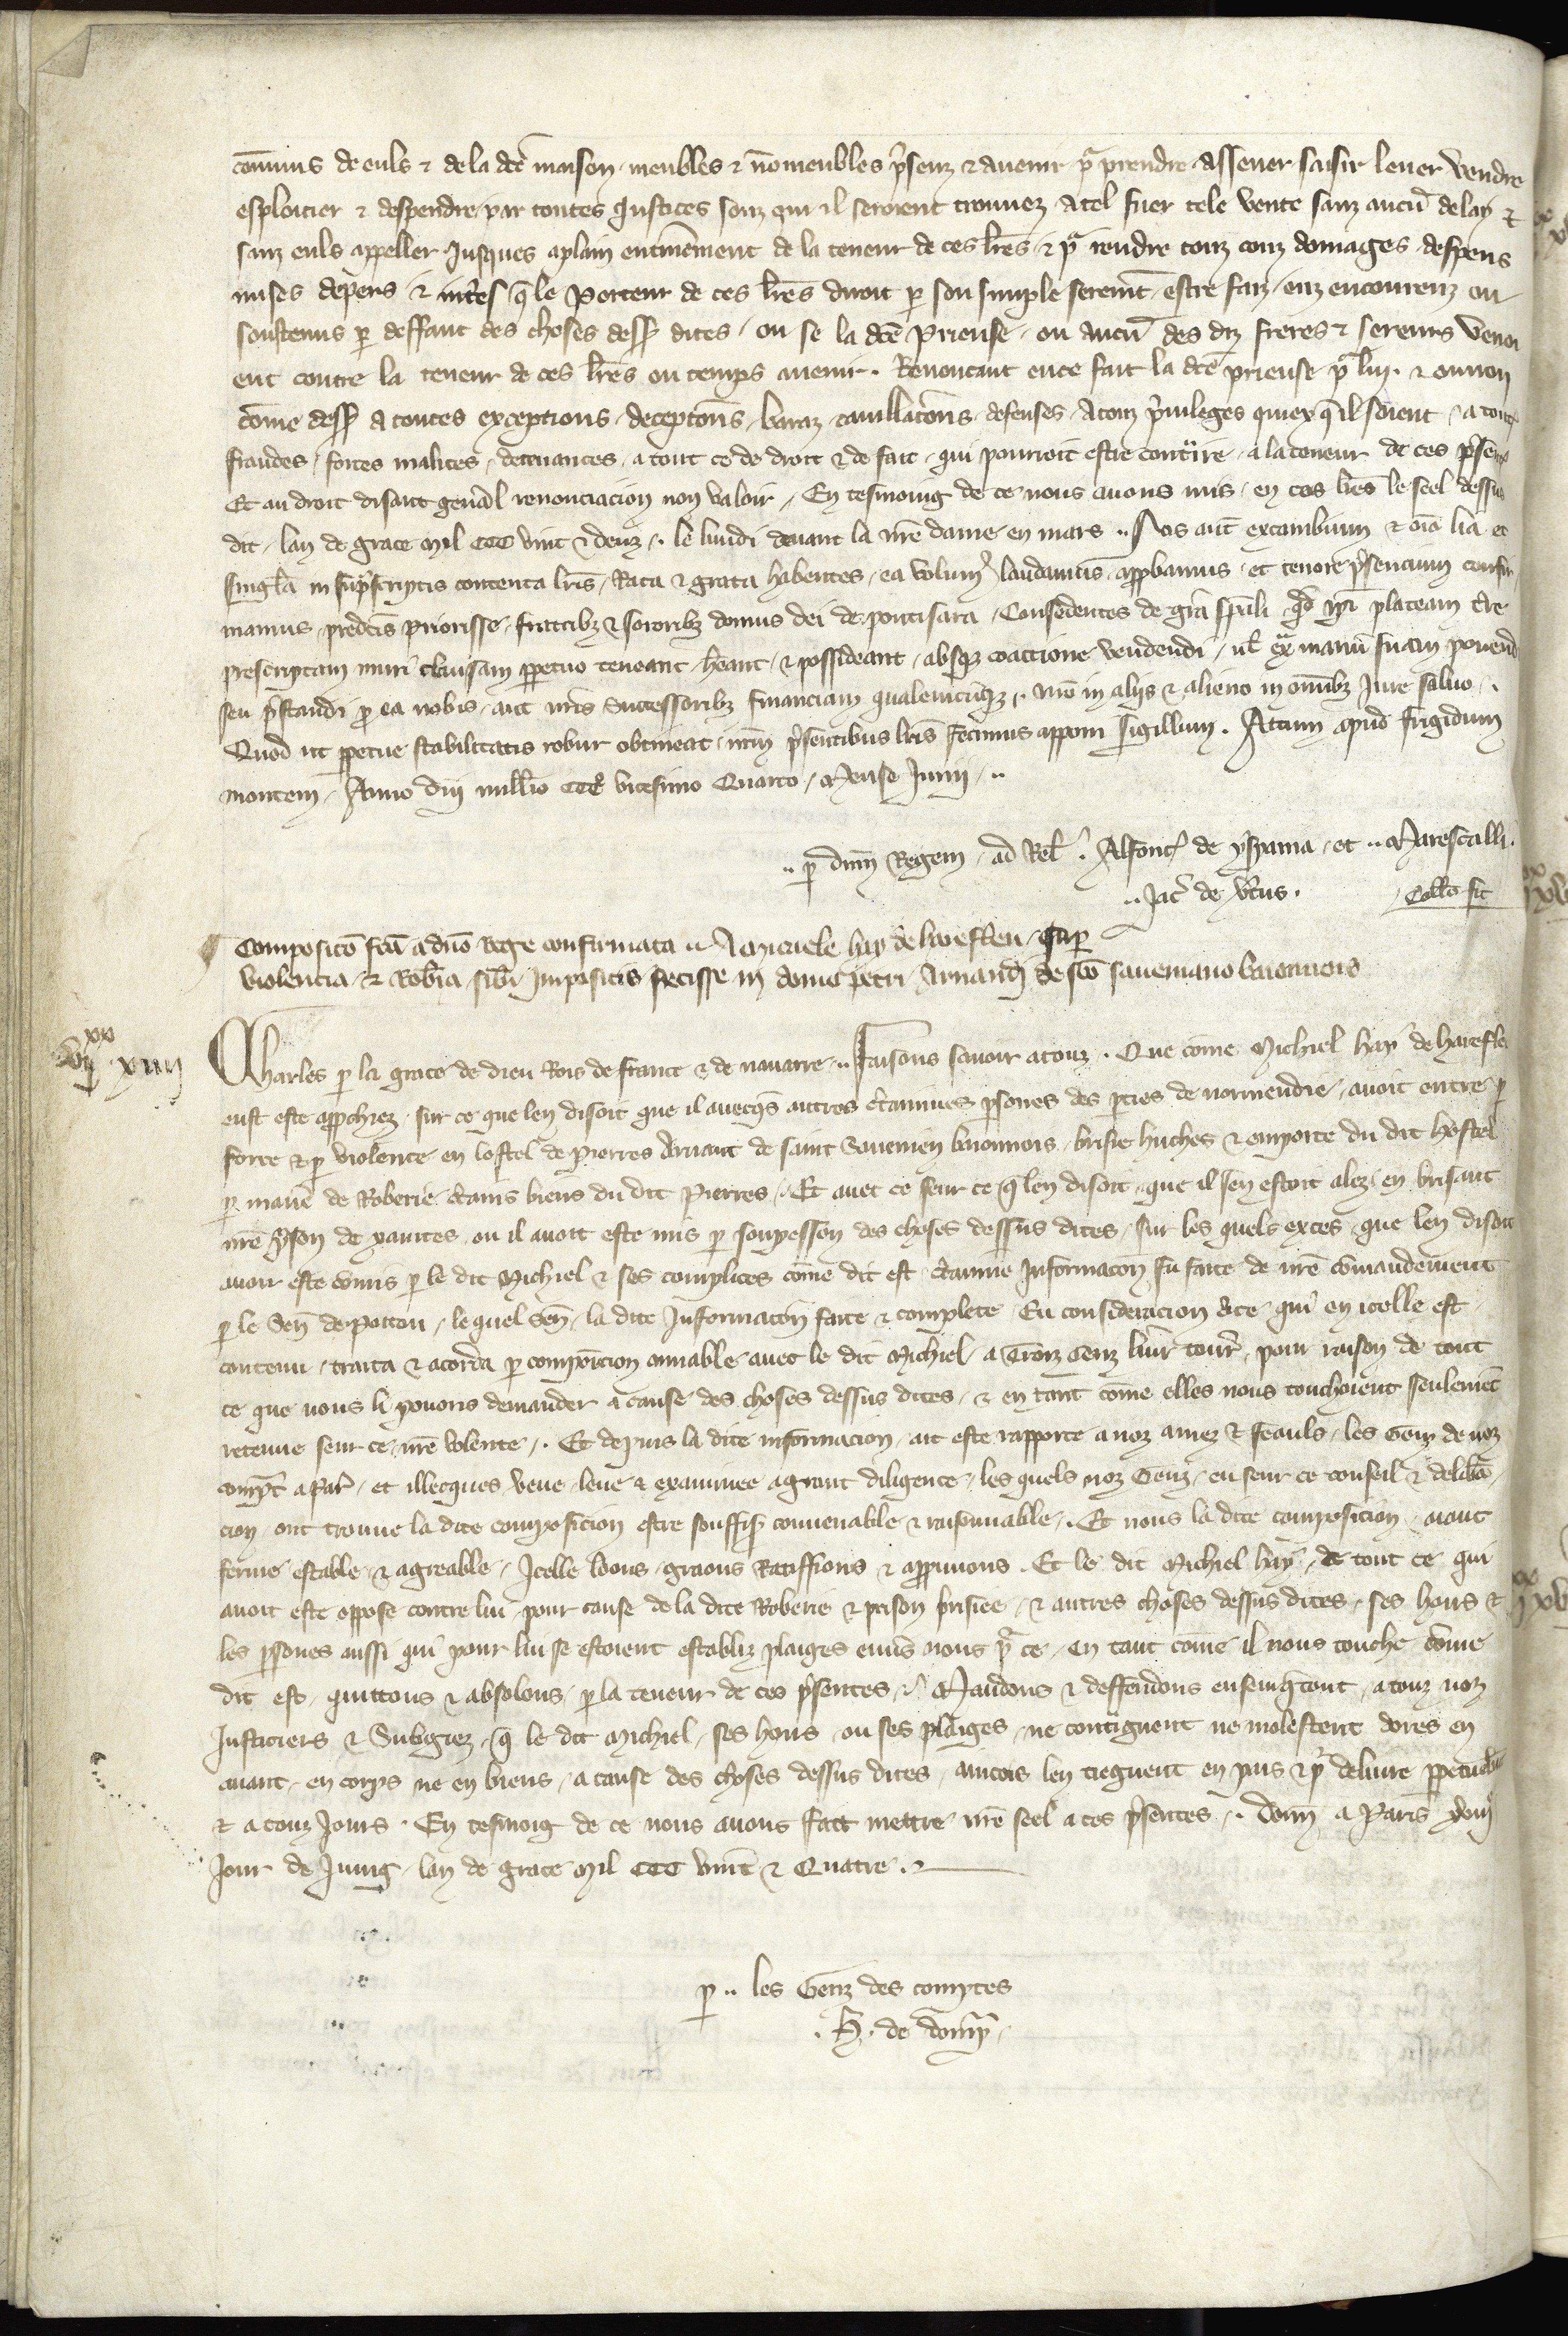 cōmuns de euls ⁊ de la dcē maison, meubles ⁊ nōmeubles p̄senz ⁊ avenir pᵃ prendre assener saisir lever vendre
esploitier ⁊ despendre par toutes justices souz qui il seroient trouvez a tel fuer tele vente sanz aucū delay ⁊
sanz euls appeller jusques a plain enterinement de la teneur de ces lr̄es, ⁊ pᵃ rendre touz couz domages despens
mises depers ⁊ int̄es q̄ le porteur de ces lr̄es diroit ꝑ son simple serem̄t estre faiz euz encourruz ou
soustenus ꝑ deffaut des choses dess9 dites, ou se la dcē prieuse, ou aucū des diz freres ⁊ sereurs venoi
ent contre la teneur de ces lr̄es ou temps avenir. Renoncant en ce fait la dcē prieuse pᵃ lui, ⁊ ou non
cōme dess9 a toutes exceptions, deceptōns, baraz, cavillatōns, defenses, a touz p̄vileges quiex q̄ il soient, a toutes
fraudes, fortes malices, decevances, a tout ce de droit ⁊ de fait, qui pourroit estre contᵃire a la teneur de ces p̄sentes
Et au droit disant gen̄al renonciacion non valoir, En tesmoing de ce nous avons mis en ces lr̄es le seel dessus
dit, lan de grace mil CCC vint ⁊ deux, le lundi devant la nr̄e dame en mars .. Nos aut̄ excambium ⁊ om̄ia alia et
singl̄a in sup̄scriptis contenta lr̄is, Rata ⁊ grata habentes, ea volum9 laudamus, approbamus, et tenore p̄sencium confir
mamus, predcīs priorisse, fratribꝫ ⁊ sororibꝫ domus dei de pontisara, Concedentes de grā sp̄ali qd̄ ip̄i plateam
prescriptam muri clausam ꝑpetuo teneant, hēant, ⁊ possideant, absqꝫ coaccione vendendi, ul̄ exᵃ manū suam ponend
seu p̄standi ꝓ ea nobis, aut nr̄is successoribꝫ financiam qualemcūqꝫ, nr̄o in aliis ⁊ alieno in om̄ibꝫ jure salvo.
Quod ut ꝑpetue stabilitatis robur obtineat, nr̄m p̄sentibus lr̄is fecimus apponi sigillum. Actum apud frigidum
montem, Anno dn̄i mill̄io CCCº vicesimo Quarto, mense junii, ..
.. ꝑ dn̄m Regem, ad Rel̄. Alfonc9 de yspania, et .. Marescalli.
.. Jac̄ de vtus. Coll̄o fit
¶ Compositō fcā a dn̄o Rege confirmata .. A Michaele hay de harefleu, suꝑ
violencia, ⁊ Rob̄ia sibi impositis fecisse in domo petri Arnandi de sc̄o saveniano
viˣˣ xiiii
Charles ꝑ la grace de dieu Rois de france ⁊ de navarre .. Faisons savoir a touz. Que cōme Michiel hay de harefleu
eust este approchiez, sur ce que len disoit que il avecq̄s autres c̄taines ꝑsones des ꝑties de normendie, avoit entre ꝑ
force ⁊ ꝑ violence en lostel de pierres Arnaut de saint Savenien, brisie huches ⁊ emporte du dit hostel
ꝑ manie᷑ de Roberie c̄tains biens du dit Pierres, Et avec ce seur ce q̄ len disoit, que il sen estoit alez en brisant
nr̄e p̄son de xantes, ou il avoit este mis ꝑ soupesson des choses dessus dites, sur les quels exces, que len disoit
avoir este cōmis ꝑ le dit Michiel ⁊ ses complices cōme dit est, c̄taine informacōn fu faite de nr̄e cōmandement
ꝑ le Sen̄ de poitou, lequel sen̄, la dite informacōn faite ⁊ complete Eu consideracion a ce qui en icelle est
contenu, traita ⁊ acorda ꝑ composicion amiable avec le dit Michiel a Trois Cenz livr̄ tourn̄, pour raison de tout
ce que nous li povons demander a cause des choses dessus dites, ⁊ en tant cōme elles nous touchoient seulem̄t
retenue seur ce nr̄e volente, Et depuis la dite informacion ait este rapporte a noz amez ⁊ feauls, les Genz de noz
compt̄ a par̄, et illecques veue leue ⁊ examinee a grant diligence, les quels noz Genz, eu seur ce conseil ⁊ delib̄a
cion, ont trouve la dite composicion estre souffis̄ convenable ⁊ raisonnable, Et nous la dite composicion, aiant
ferme estable ⁊ agreable, Icelle loons, greons Ratiffions ⁊ approuvons. Et le dit Michiel hay, de tout ce qui
avoit este oppose contre lui, pour cause de la dite Roberie ⁊ prison brisiee, ⁊ autres choses dessus dites, ses hoirs ⁊
les ꝑsones aussi qui pour lui se estoient establiz plaiges envers nous pᵃ ce, en tant cōme il nous touche cōme
dit est, quittons ⁊ absolons, ꝑ la teneur de ces p̄sentes, Mandons ⁊ deffendons ensemq̄tout, a touz noz
Justiciers ⁊ Subgiez, q̄ le dit Michiel, ses hoirs, ou ses plaiges, ne contᵃignent ne molestent dores en
avant, en corps ne en biens, a cause des choses dessus dites, aincois len tiegnent en pais ⁊ pᵃ delivre ꝑpetuelm̄t
⁊ a touz jours. En tesmoig de ce nous avons fait mettre nr̄e seel a ces p̄sentes, .. Donn̄ a Paris
jour de juing lan de grace mil CCC vint ⁊ Quatre.
ꝑ .. les Genz des comptes
. H. de Dom̄p̄.